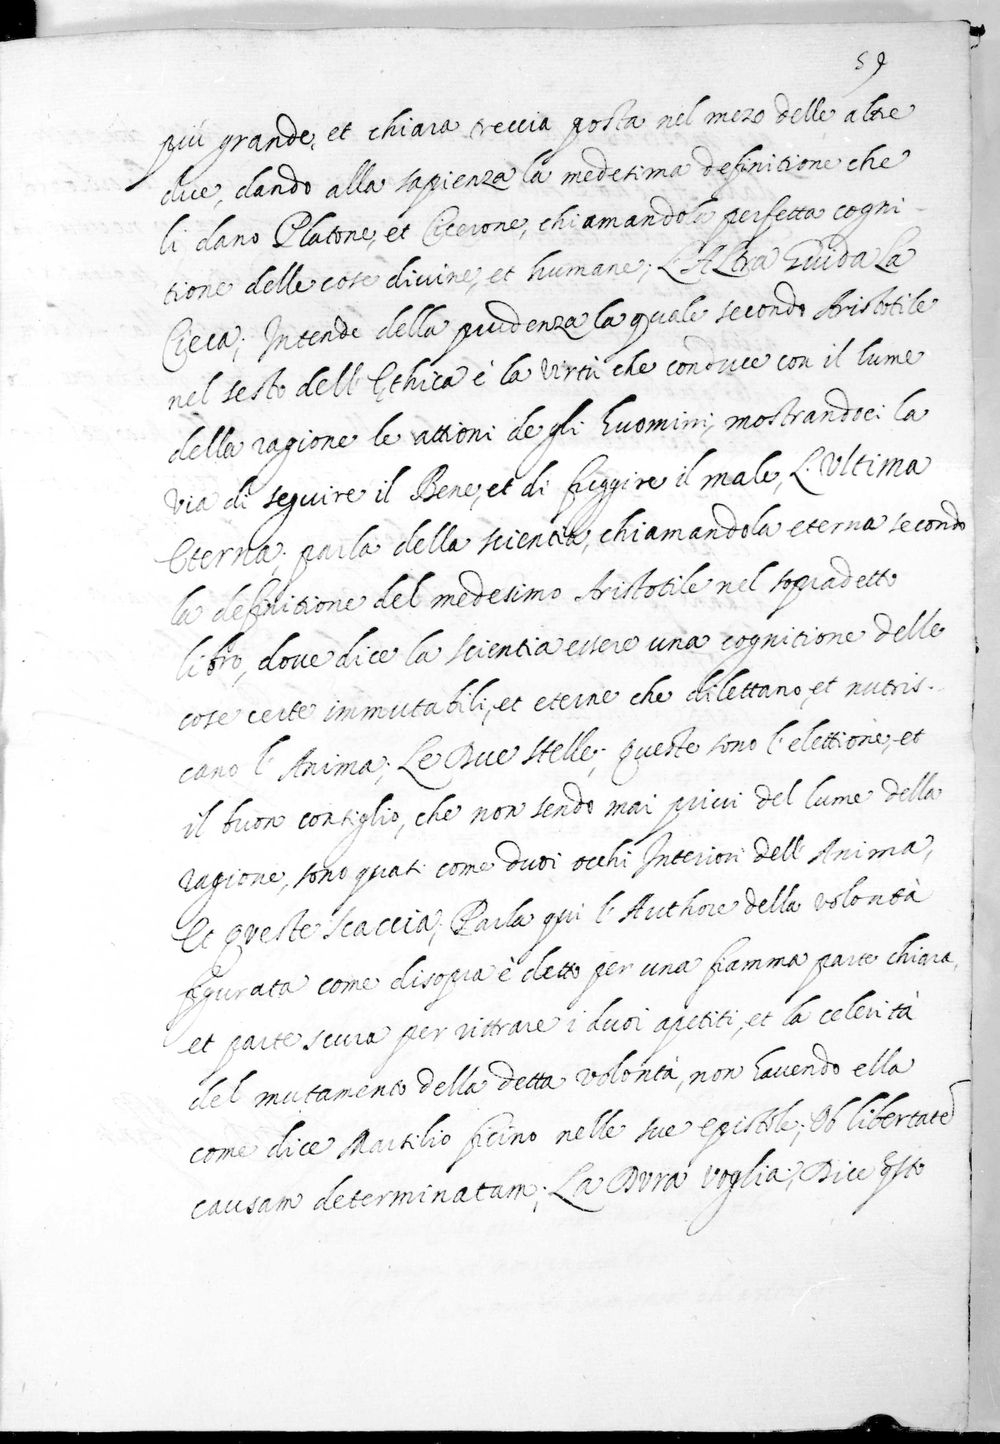 59
più grande, et chiara treccia posta nel mezo delle altre
due, dando alla sapienza la medesima definitione che
li dano Platone, et Cicerone, chiamandola perfetta cogni-
tione delle cose divine, et humane; L'Altra Guida La
Cieca; Intende della prudenza la quale secondo Aristotile
nel sesto dell'Ethica è la virtù che conduce con il lume
della ragione le attioni de gli huomini, mostrandoci la
via di seguire il Bene, et di fuggire il male, L'Ultima
Eterna; parla della scientia, chiamandola eterna secondo
la definitione del medesimo Aristotile nel sopradetto
libro, dove dice la scientia essere una cognitione delle
cose certe immutabili, et eterne che dilettano, et nutris-
cano l'Anima; Le Due Stelle; Queste sono l'elettione, et
il buon consiglio, che non sendo mai privi del lume della
ragione, sono quasi come duoi occhi Interiori dell'Anima,
Et Queste Scaccia; Parla qui l'Authore della volontà
figurata come disopra è detto per una fiamma parte chiara,
et parte scura per rittrare i duoi apetiti, et la celerità
del mutamento della detta volontà, non havendo ella
come dice Marsilio ficino nelle sue epistole; Ob libertatē
causam determinatam; La Dura voglia; Dice Qsto